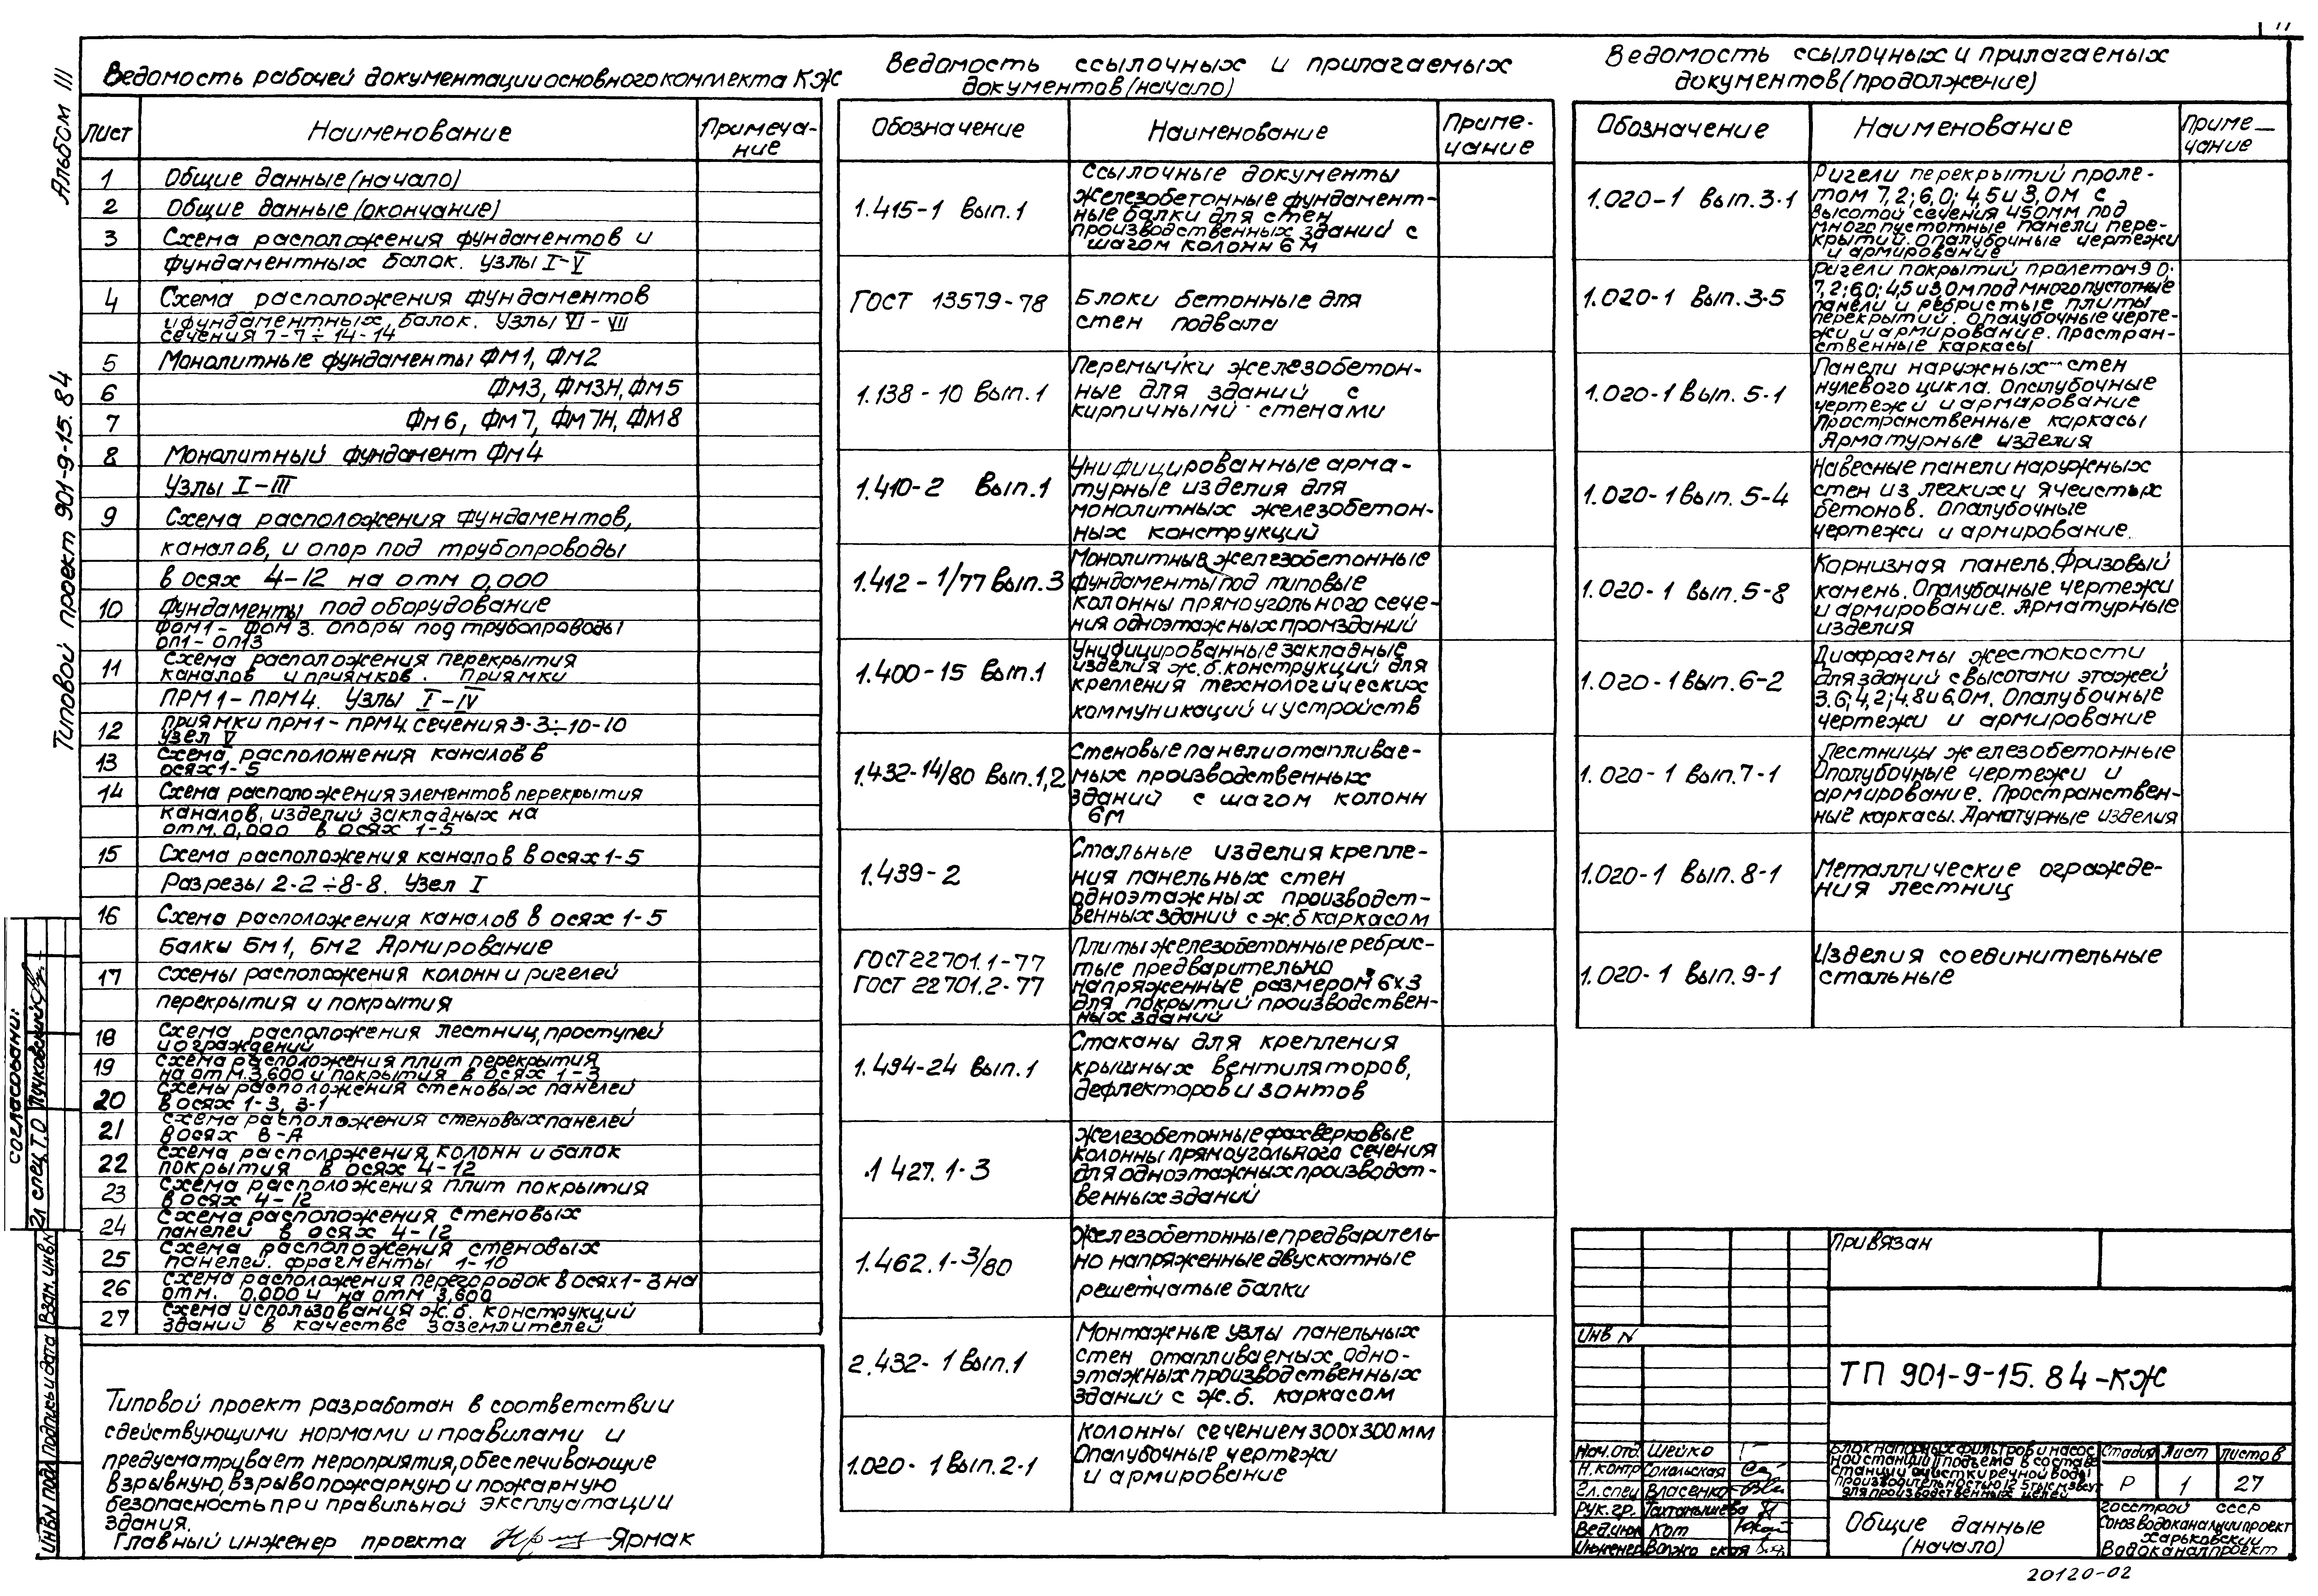 11
Альбом III
Типовой проект 901-9-15.84
Согласовано:
Гл спец Т.О
Взам. инв N
Подпись и дата
Инв N подл
Ведомость рабочей документации основного комплекта КЖ
Лист Наименование Примеча-
ние
1 Общие данные (начало)
2 Общие данные (окончание)
3 Схема расположения фундаментов и
фундаментных балок. Узлы I-V
4 Схема расположения фундаментов
и фундаментных балок. Узлы VI-VII
сечения 7-7÷14-14
5 Монолитные фундаменты ФМ1, ФМ2
6 ФМ3, ФМ3Н, ФМ5
7 ФМ6, ФМ7, ФМ7Н, ФМ8
8 Монолитный фундамент ФМ4
Узлы I-III
9 Схема расположения фундаментов,
каналов, и опор под трубопроводы
в осях 4-12 на отм 0,000
10 Фундаменты под оборудование
ФОМ1-ФОМ3. Опоры под трубопроводы
ОП1-ОП13
11 Схема расположения перекрытия
каналов и приямков. Приямки
ПРМ1-ПРМ4. Узлы I-IV
12 Приямки ПРМ1-ПРМ4. Сечения 3-3÷10-10
Узел V
13 Схема расположения каналов в
осях 1-5
14 Схема расположения элементов перекрытия
каналов, изделий закладных на
отм. 0,000 в осях 1-5
15 Схема расположения каналов в осях 1-5
Разрезы 2-2÷8-8. Узел I
16 Схема расположения каналов в осях 1-5
Балки БМ1, БМ2 Армирование
17 Схемы расположения колонн и ригелей
перекрытия и покрытия
18 Схема расположения лестниц, проступей
и ограждений
19 Схема расположения плит перекрытия
на отм. 3,600 и покрытия в осях 1-3
20 Схемы расположения стеновых панелей
в осях 1-3, 3-1
21 Схема расположения стеновых панелей
в осях В-А
22 Схема расположения колонн и балок
покрытия в осях 4-12
23 Схема расположения плит покрытия
в осях 4-12
24 Схема расположения стеновых
панелей в осях 4-12
25 Схема расположения стеновых
панелей. Фрагменты 1-10
26 Схема расположения перегородок в осях 1-3 на
отм. 0,000 и на отм 3,600
27 Схема использования ж.б. конструкций
зданий в качестве заземлителей
Типовой проект разработан в соответствии
с действующими нормами и правилами и
предусматривает мероприятия, обеспечивающие
взрывную, взрывопожарную и пожарную
безопасность при правильной эксплуатации
здания.
Главный инженер проекта Ярмак
Ведомость ссылочных и прилагаемых
документов (начало)
Обозначение Наименование Приме-
чание
Ссылочные документы
1.415-1 Вып.1 Железобетонные фундамент-
ные балки для стен
производственных зданий с
шагом колонн 6 м
ГОСТ 13579-78 Блоки бетонные для
стен подвала
1.138-10 Вып.1 Перемычки железобетон-
ные для зданий с
кирпичными стенами
1.410-2 Вып.1 Унифицированные арма-
турные изделия для
монолитных железобетон-
ных конструкций
1.412-1/77 Вып.3 Монолитные железобетонные
фундаменты под типовые
колонны прямоугольного сече-
ния одноэтажных промзданий
1.400-15 Вып.1 Унифицированные закладные
изделия ж.б. конструкций для
крепления технологических
коммуникаций и устройств
1.432-14/80 Вып.1,2 Стеновые панели отапливае-
мых производственных
зданий с шагом колонн
6м
1.439-2 Стальные изделия крепле-
ния панельных стен
одноэтажных производст-
венных зданий с ж.б каркасом
ГОСТ 22701.1-77
ГОСТ 22701.2-77 Плиты железобетонные ребрис-
тые предварительно
напряженные размером 6х3
для покрытий производствен-
ных зданий
1.494-24 Вып.1 Стаканы для крепления
крышных вентиляторов,
дефлекторов и зонтов
.1 427.1-3 Железобетонные фахверковые
колонны прямоугольного сечения
для одноэтажных производст-
венных зданий
1.462.1-3/80 Железобетонные предваритель-
но напряженные двускатные
решетчатые балки
2.432-1 Вып.1 Монтажные узлы панельных
стен отапливаемых одно-
этажных производственных
зданий с ж.б. каркасом
1.020-1 Вып.2-1 Колонны сечением 300х300мм
Опалубочные чертежи
и армирование
Ведомость ссылочных и прилагаемых
документов (продолжение)
Обозначение Наименование Приме-
чание
1.020-1 Вып.3-1 Ригели перекрытий проле-
том 7,2; 6,0; 4,5 и 3,0м с
высотой сечения 450мм под
многопустотные панели пере-
крытий. Опалубочные чертежи
и армирование
1.020-1 Вып.3-5 Ригели покрытий пролетом 9 0;
7,2; 6,0; 4,5 и 3,0м под многопустотные
панели и ребристые плиты
перекрытий. Опалубочные черте-
жи и армирование. Простран-
ственные каркасы
1.020-1 Вып. 5-1 Панели наружных стен
нулевого цикла. Опалубочные
чертежи и армирование
Пространственные каркасы
Арматурные изделия
1.020-1 Вып. 5-4 Навесные панели наружных
стен из легких и ячеистых
бетонов. Опалубочные
чертежи и армирование.
1.020-1 Вып.5-8 Карнизная панель. Фризовый
камень. Опалубочные чертежи
и армирование. Арматурные
изделия
1.020-1 Вып.6-2 Диафрагмы жесткости
для зданий с высотами этажей
3.6; 4,2; 4.8 и 6.0м. Опалубочные
чертежи и армирование
1.020-1 Вып.7-1 Лестницы железобетонные
Опалубочные чертежи и
армирование. Пространствен-
ные каркасы. Арматурные изделия
1.020-1 Вып.8-1 Металлические огражде-
ния лестниц
1.020-1 Вып.9-1 Изделия соединительные
стальные
Привязан
Инв N
ТП 901-9-15.84-КЖ
Нач.отд Шейко
Н.контр Сокольская
Гл.спец Власенко
Рук.гр.
Вед.инж Кот
Инженер
Блок напорных фильтров и насос
ной станции II подъема в составе
станции очистки речной воды
производительностью 12 5 тыс м3/сут
для производственных целей
Стадия Лист Листов
Р 1 27
Общие данные
(начало)
Госстрой СССР
Союзводоканалниипроект
Харьковский
Водоканалпроект
20120-02